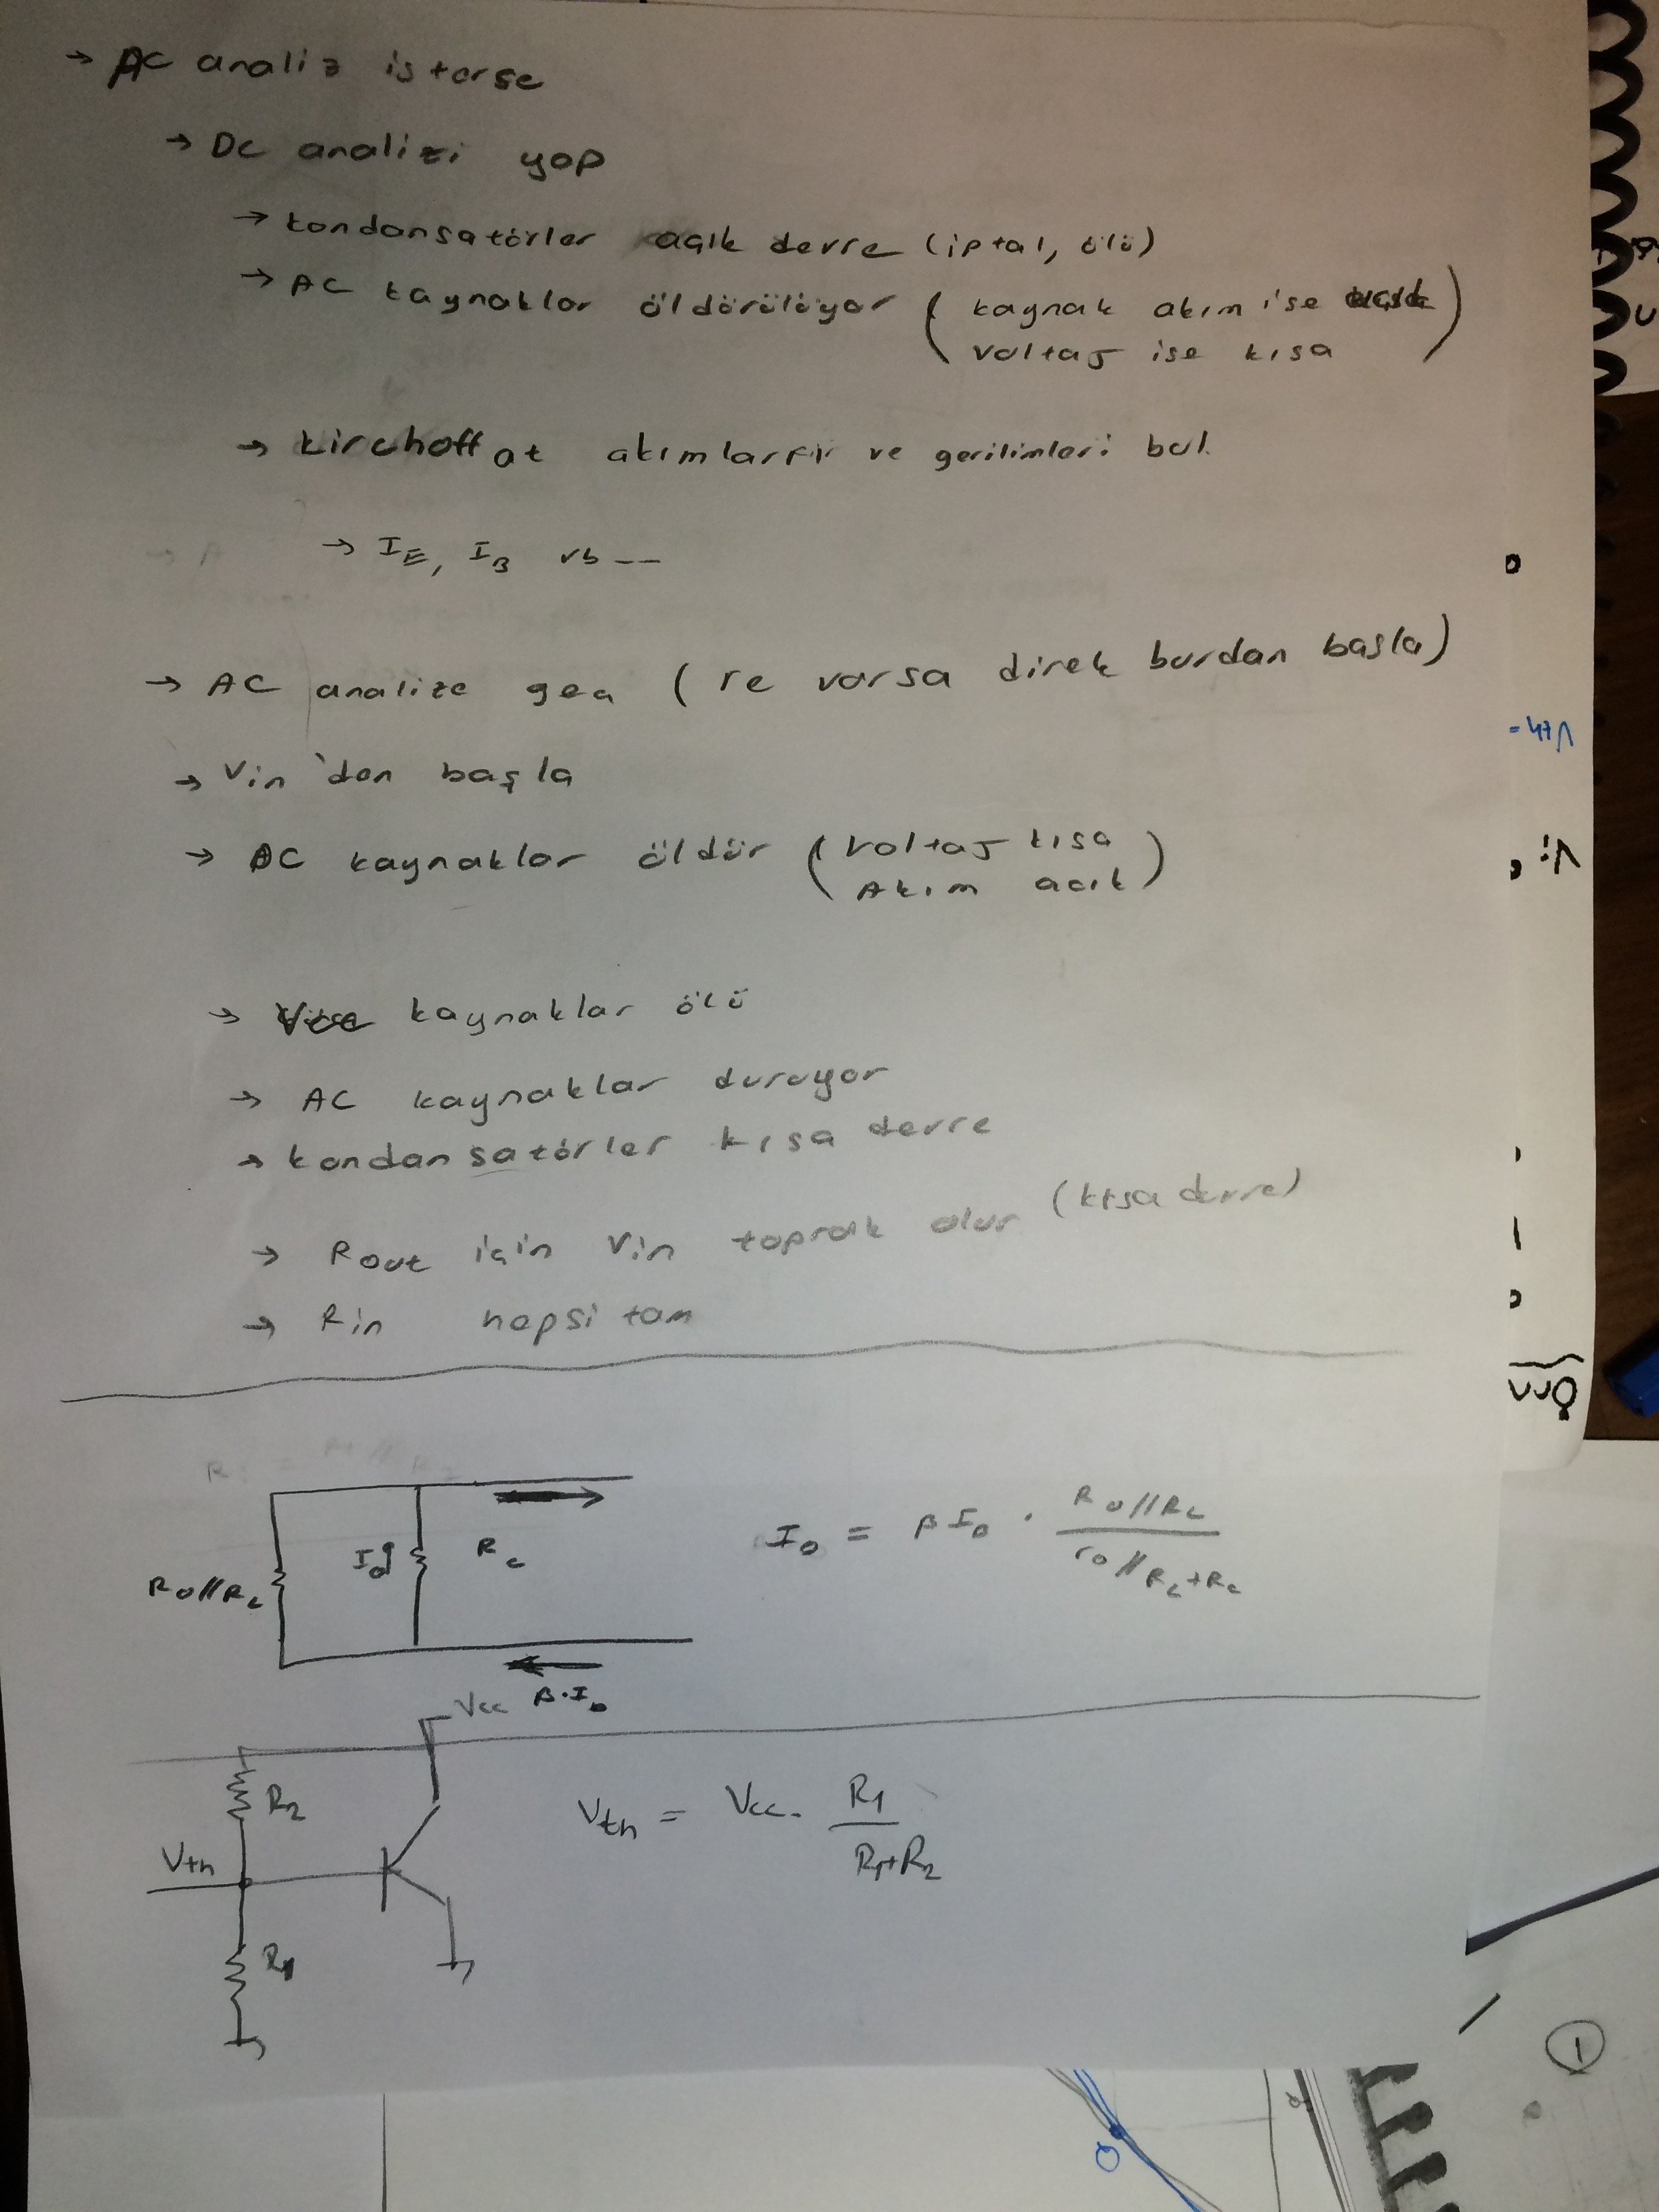 → AC analiz isterse
→ DC analizi yap
→ kondansatörler açık devre (iptal, ölü)
→ AC kaynaklar öldürülüyor ( kaynak akım ise
voltaj ise kısa )
→ kirchoff at akımları ve gerilimleri bul.
→ IE, IB vb --
→ AC analize geç ( re varsa direk burdan başla)
→ Vin'den başla
→ DC kaynaklar öldür ( Voltaj kısa
Akım açık )
→ kaynaklar ölü
→ AC kaynaklar duruyor
→ kondansatörler kısa devre
→ Rout için Vin toprak olur (kısa devre)
→ Rin hepsi tam
Io = βIb . Ro//RL
ro//RL+Rc
Ro//RL
Io
Rc
β.Ib
Vcc
R2
Vth = Vcc. R1
R1+R2
Vth
R1
Vth =
Vi
1